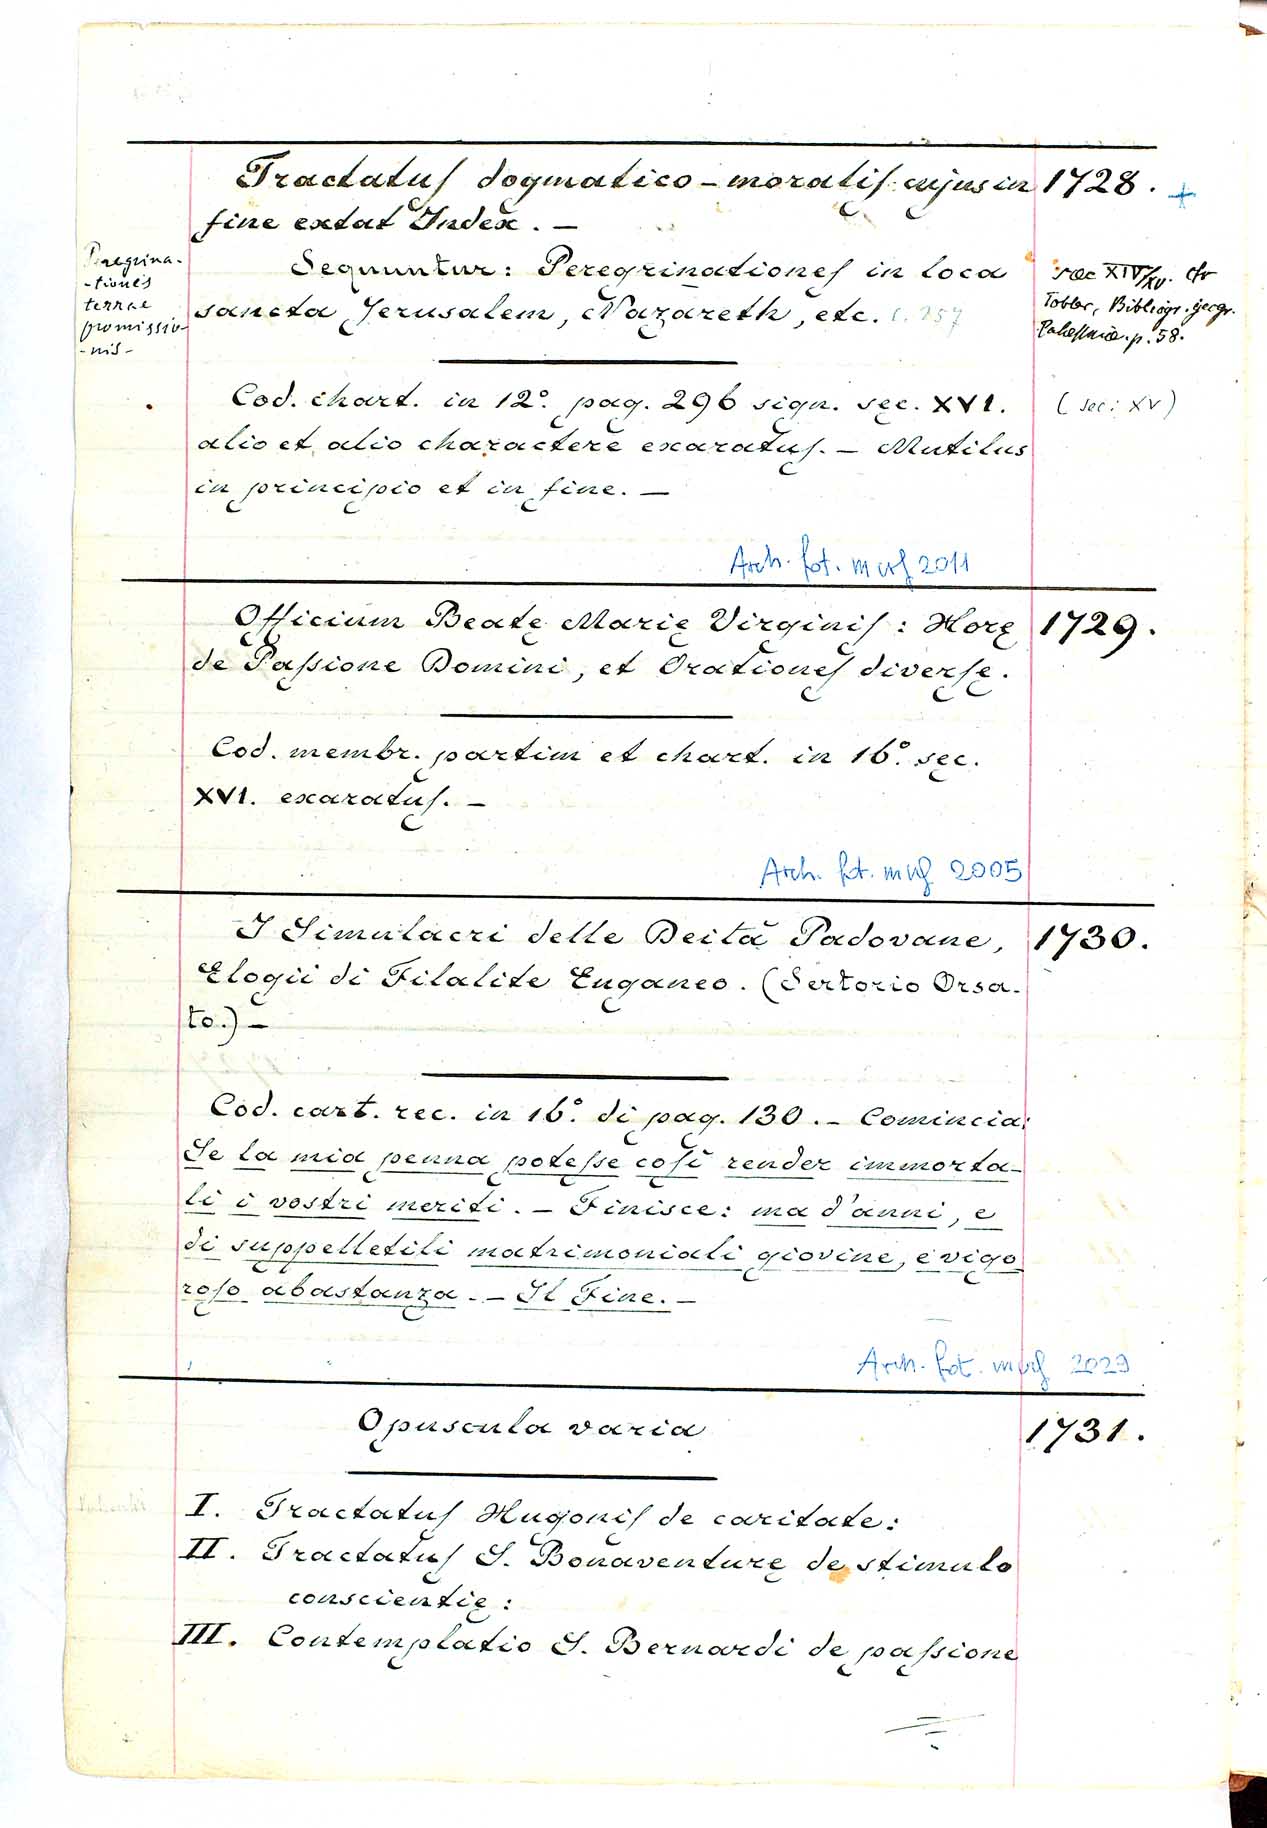 Tractatus dogmatico-moralis cujus in 1728. +
fine extat Index. —
Peregrina-
-tiones
terrae
promissio-
-nis-
Sequuntur: Peregrinationes in loca
sancta Jerusalem, Nazareth, etc. c. 257
saec XIV/XV. cfr
Tobler, Bibliogr. geogr.
Palestinae. p. 58.
Cod. chart. in 12º. pag. 296 sign. sęc. XVI.
(sec: XV)
alio et alio charactere exaratus. — Mutilus
in principio et in fine. —
Arch. fot. mcrf 2011
Officium Beatę Marię Virginis: Horę 1729.
de Passione Domini, et Orationes diversę.
Cod. membr. partim et chart. in 16º. sęc.
XVI. exaratus. —
Arch. fot. mcrf 2005
I Simulacri delle Deità Padovane, 1730.
Elogii di Filalite Euganeo. (Sertorio Orsa-
to.) —
Cod. cart. rec. in 16º. di pag. 130. — Comincia:
Se la mia penna potesse così render immorta-
li i vostri meriti. — Finisce: ma d'anni, e
di suppelletili matrimoniali giovine, e vigo
roso abastanza. — Il Fine. —
Arch. fot. mcrf 2029
Opuscula varia 1731.
I. Tractatus Hugonis de caritate:
II. Tractatus S. Bonaventurę de stimulo
conscientię:
III. Contemplatio S. Bernardi de passione